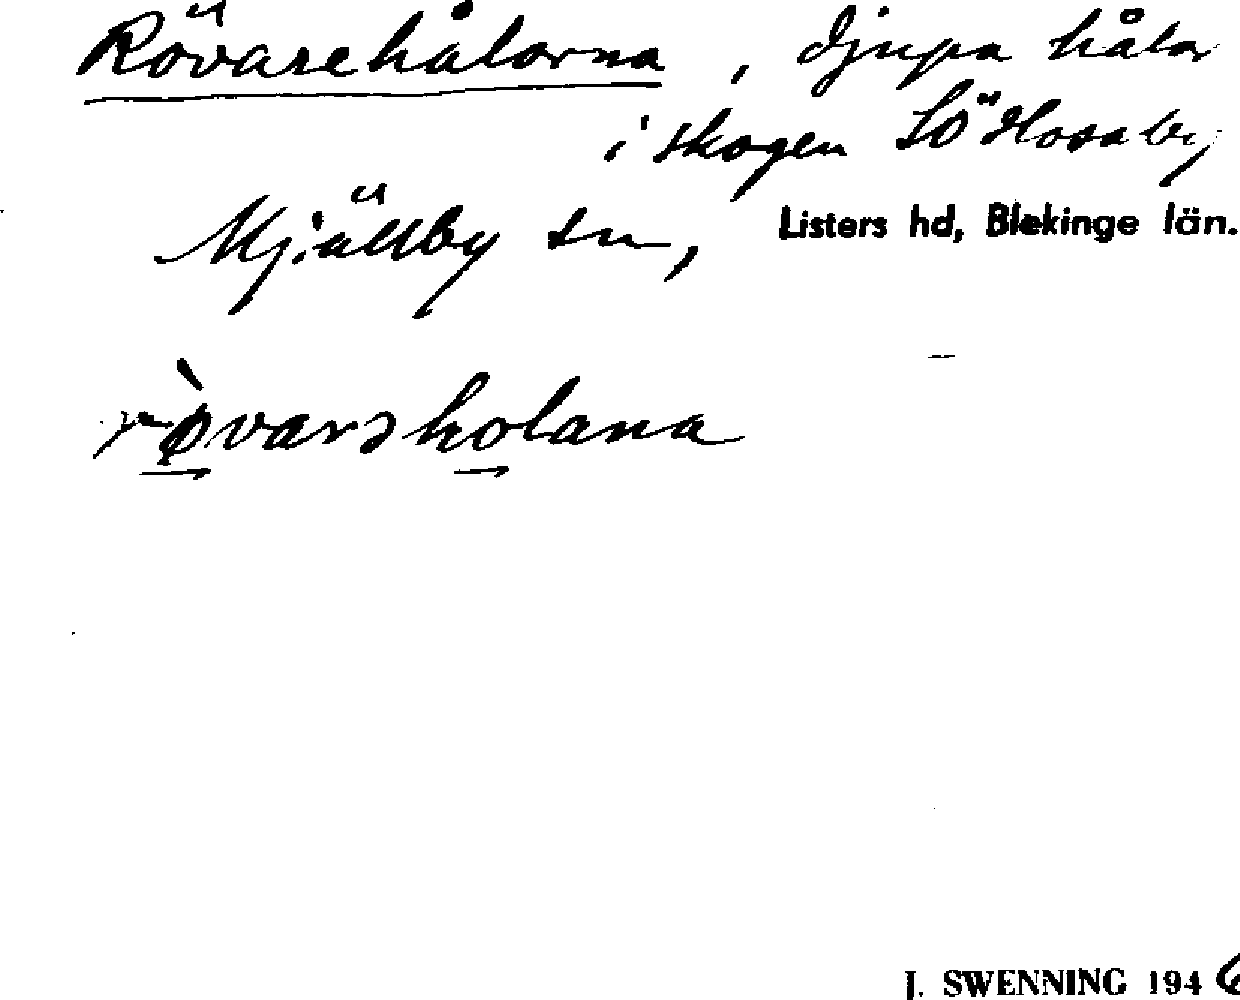 Rövarehålorna, djupa hålor
i skogen SÖ Hosaby
Mjällby sn, Listers hd, Blekinge län.
rø̀varəholana
J. SWENNING 1946